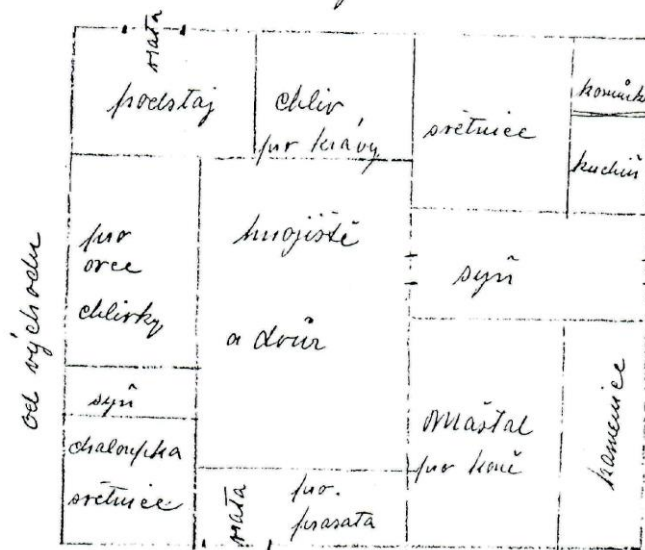 vrata
podstaj
chlív
pro krávy
světnice
komůrka
kuchiň
pro
ovce
chlívky
hnojiště
a dvůr
syň
od východu
syň
chaloupka
světnice
vrata
pro.
prasata
Maštal
pro koně
kamenice